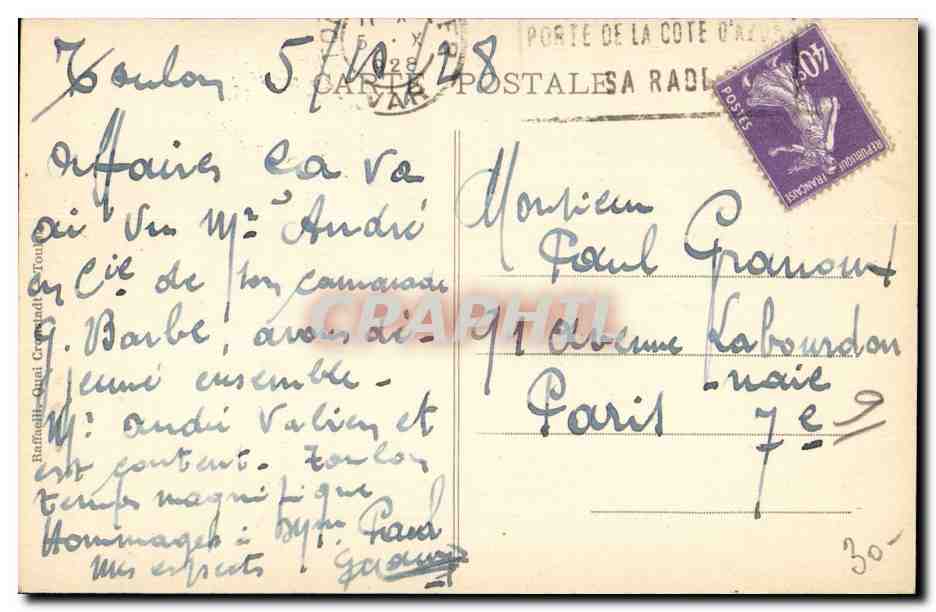 Toulon 5/10/28
CARTE POSTALE
5 X
28
VAR
PORTE DE LA COTE D'AZUR
SA RADE
40c
POSTES
REPUBLIQUE FRANÇAISE
Affaires ça va
ai vu Mr André
en Cie de son camarade
G. Barbe, avons dé-
jeuné ensemble.
Mr André Valien et
est content. Toulon
temps magnifique
Hommages à Mme Paul
Mes respects.
Monsieur
Paul Granoux
91 Avenue Labourdon
naie
Paris 7e
Raffaelli, Quai Cronstadt, Toulon
CPAPHIL
30-